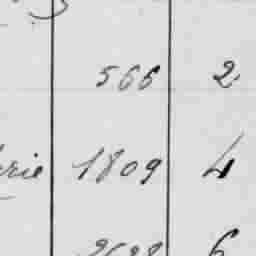 566 2
rie 1809 4
6